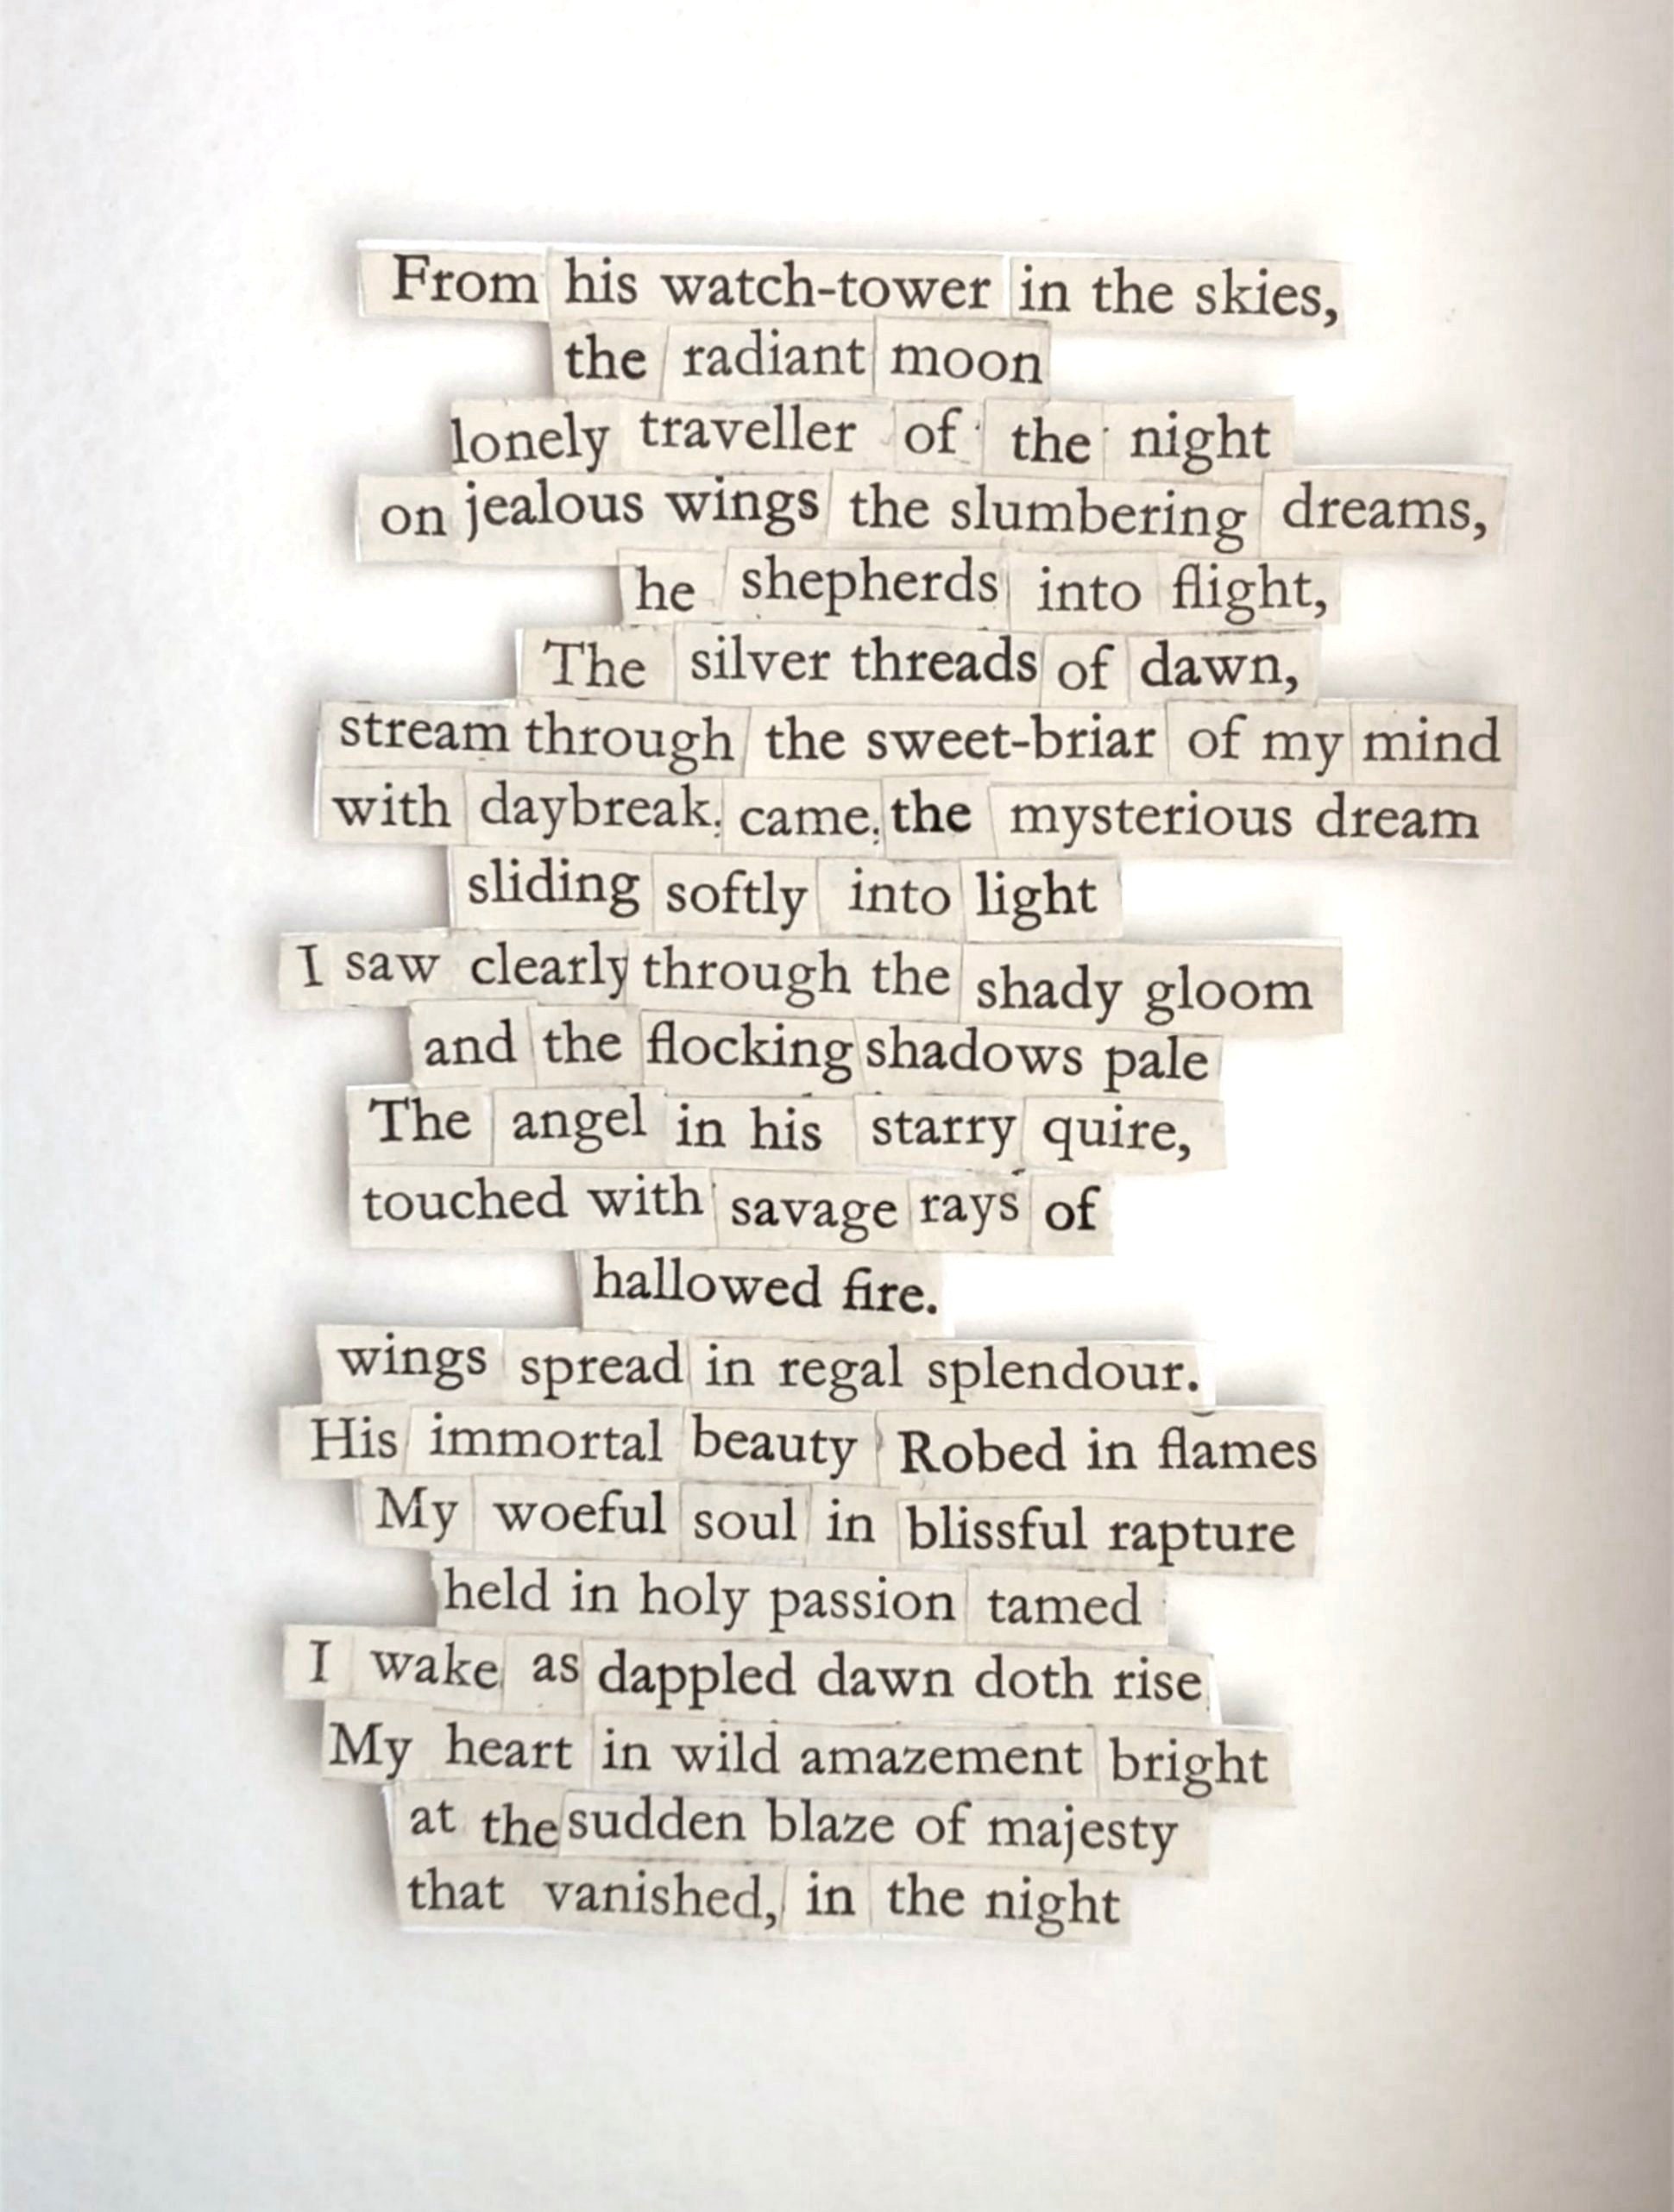 From his watch-tower in the skies,
the radiant moon
lonely traveller of the night
on jealous wings the slumbering dreams,
he shepherds into flight,
The silver threads of dawn,
stream through the sweet-briar of my mind
with daybreak; came; the mysterious dream
sliding softly into light
I saw clearly through the shady gloom
and the flocking shadows pale
The angel in his starry quire,
touched with savage rays of
hallowed fire.
wings spread in regal splendour.
His immortal beauty Robed in flames
My woeful soul in blissful rapture
held in holy passion tamed
I wake as dappled dawn doth rise
My heart in wild amazement bright
at the sudden blaze of majesty
that vanished, in the night